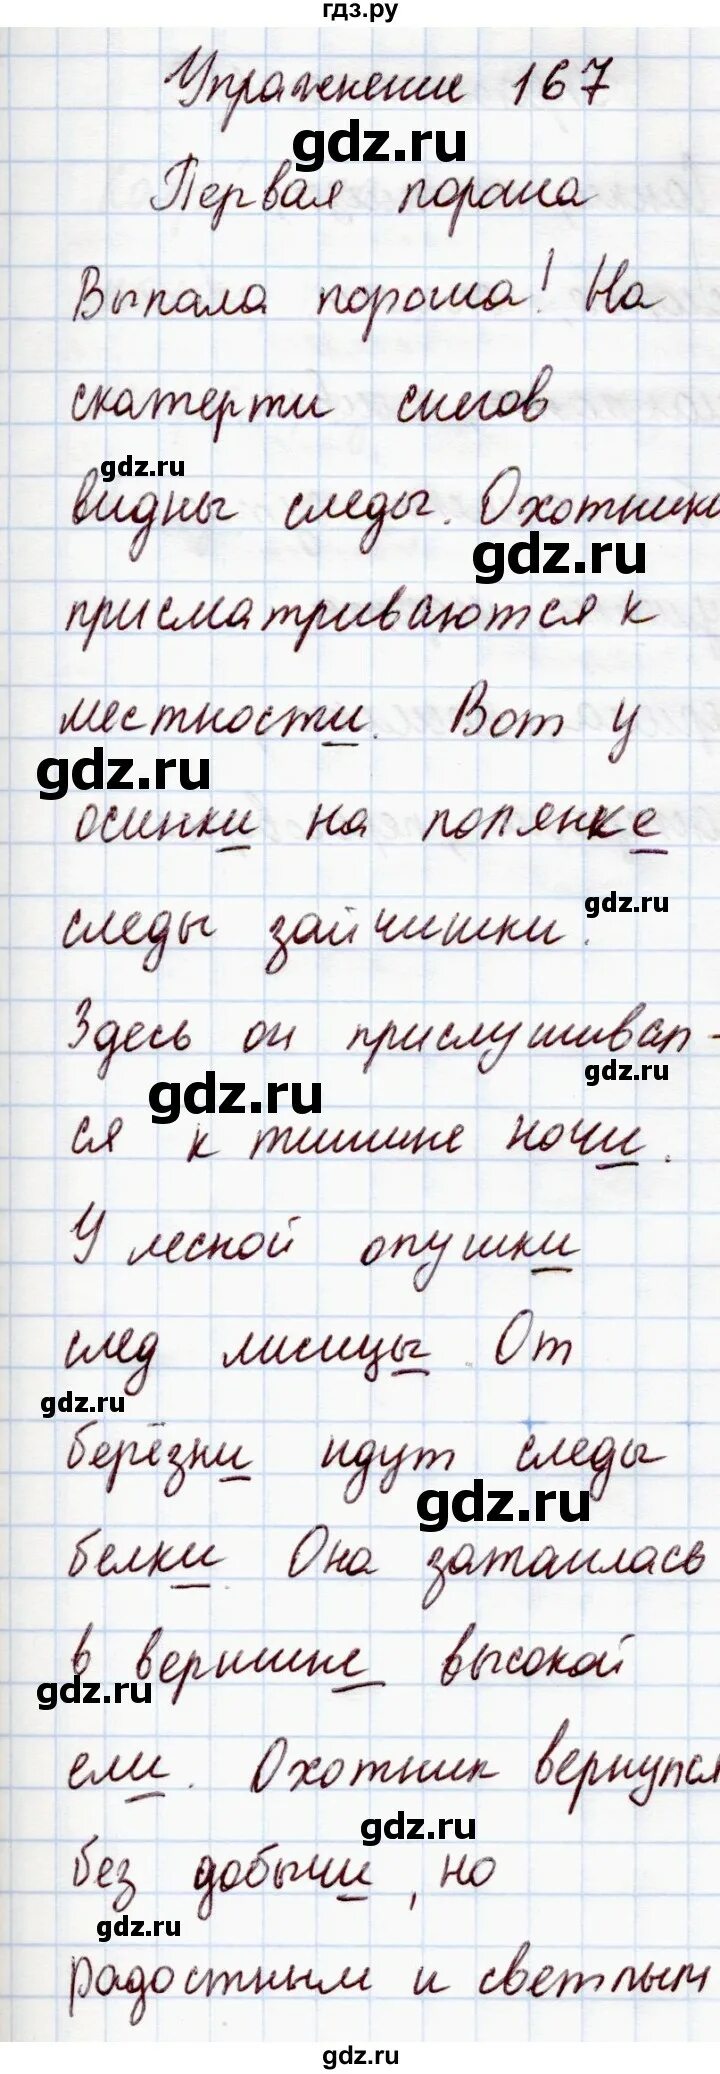 гдз.ру
Упражнение 167
gdz.ru
Первая пороша
Выпала пороша! На
скатерти снегов
gdz.ru
видны следы. Охотники
gdz.ru
присматриваются к
местности. Вот у
gdz.ru
осинки на полянке
gdz.ru
следы зайчишки.
Здесь он прислушивал-
gdz.ru
gdz.ru
ся к тишине ночи.
У лесной опушки
след лисицы. От
gdz.ru
берёзки идут следы
gdz.ru
белки. Она затаилась
в вершине высокой
gdz.ru
ели. Охотник вернулся
gdz.ru
без добычи, но
gdz.ru
радостным и светлым
gdz.ru